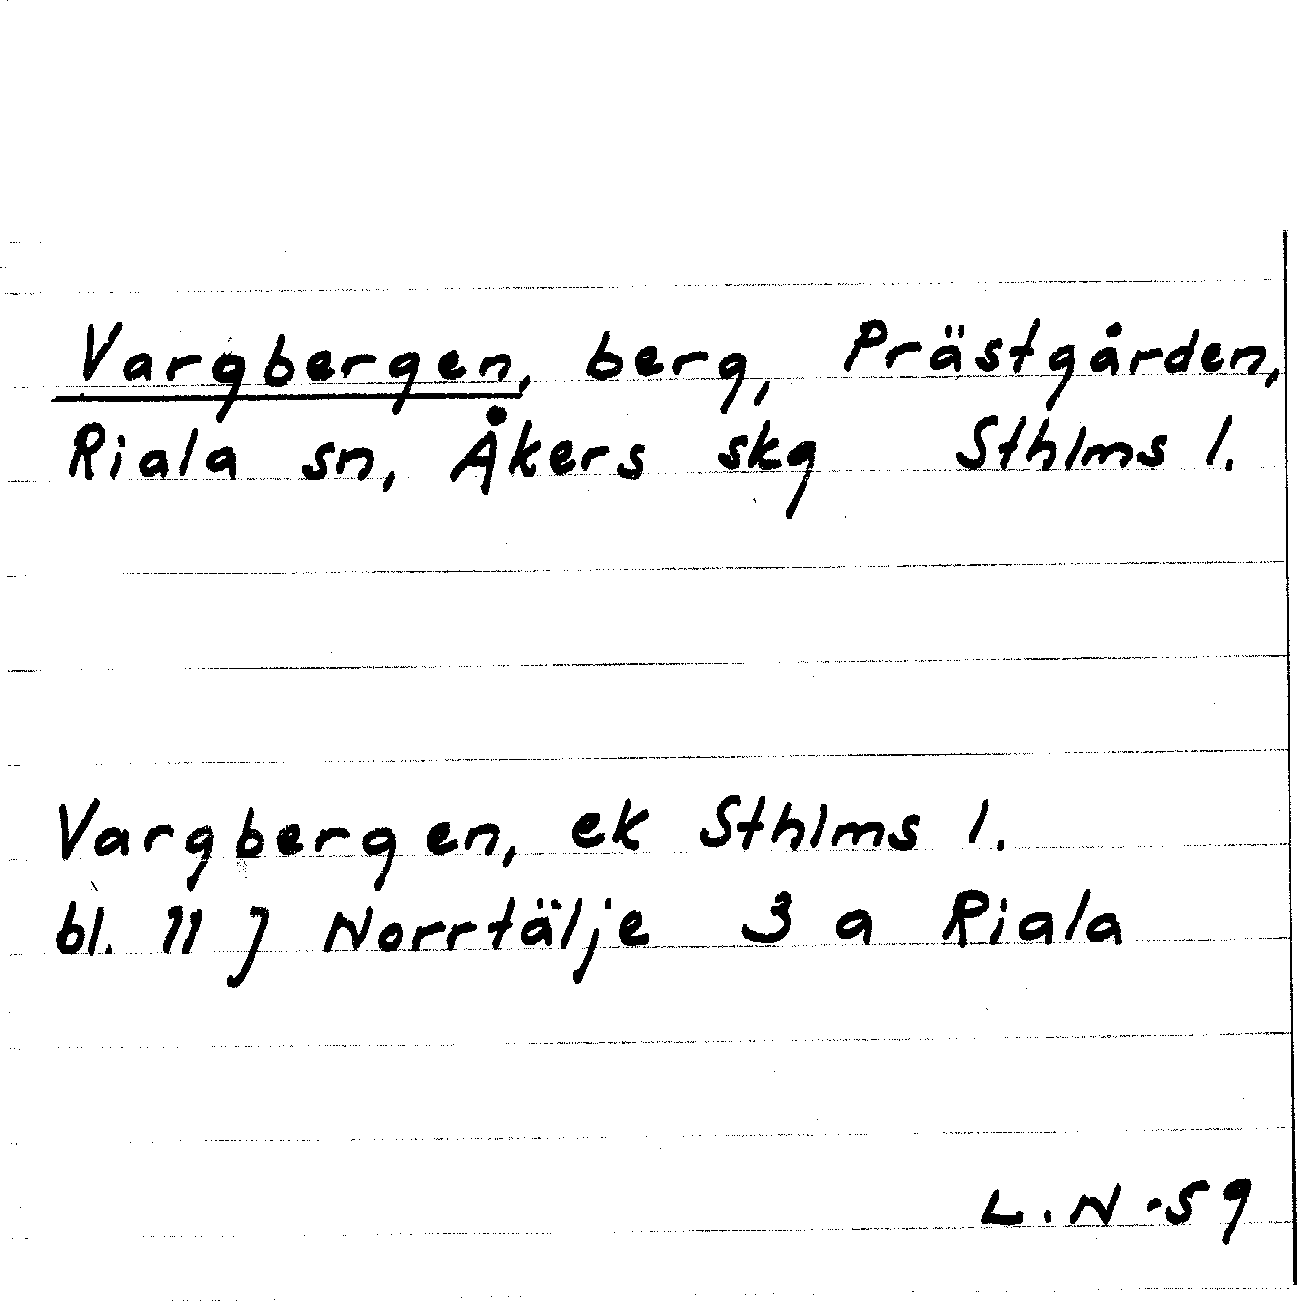 Vargbergen, berg, Prästgården,
Riala sn, Åkers skg Sthlms l.
Vargbergen, ek Sthlms l.
bl. 11 J Norrtälje 3 a Riala
L.N -59